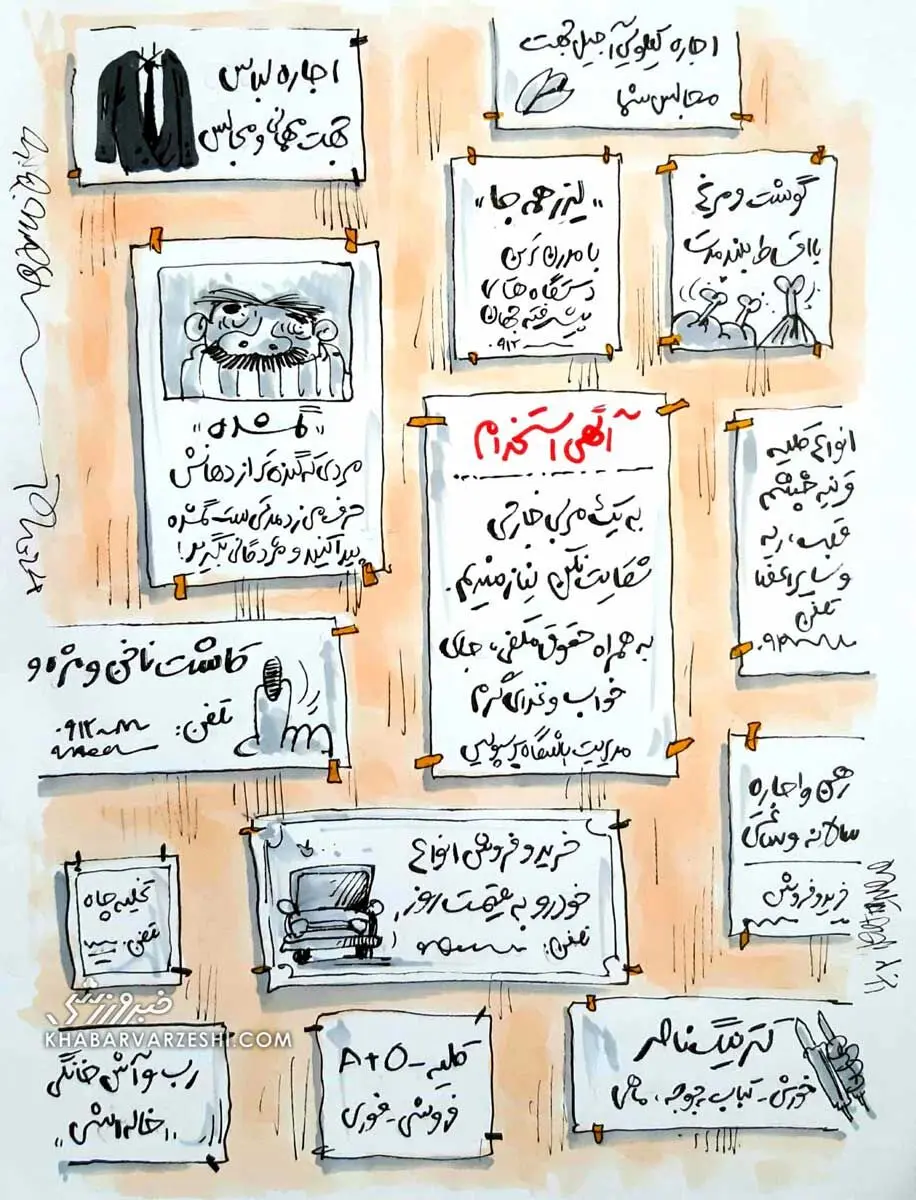 اجاره کیلویی آجیل جهت
مجالس شما
اجاره لباس
جهت مهمانی و مجالس
گوشت و مرغ
با اقساط بلند مدت
"لیزر همه جا"
با مدرن ترین
دستگاه های
پیشرفته جهان
۰۹۱۲
"گمشده"
مردی که گنده تر از دهانش
حرف می زد مدتی ست گمشده
پیدا کنید و مژدگانی بگیرید!
آگهی استخدام
به یک مربی خارجی
شکایت نکن نیازمندیم.
به همراه حقوق مکفی، جای
خواب و غذای گرم
مدیریت باشگاه پرسپولیس
انواع کلیه
قرنیه چشم
قلب، ریه
و سایر اعضا
تلفن
۰۹۳
کاشت ناخن و مژه و
تلفن: ۰۹۱۲
رهن و اجاره
سالانه و
خرید و فروش
خرید و فروش انواع
خودرو به قیمت روز
تلفن:
تخلیه چاه
تلفن:
خبرورزشی
KHABARVARZESHI.COM
کترینگ
خورش - کباب - جوجه، ماهی
کلیه - A+O
فروش - فوری
رب و آش خانگی
"خاله اشی"